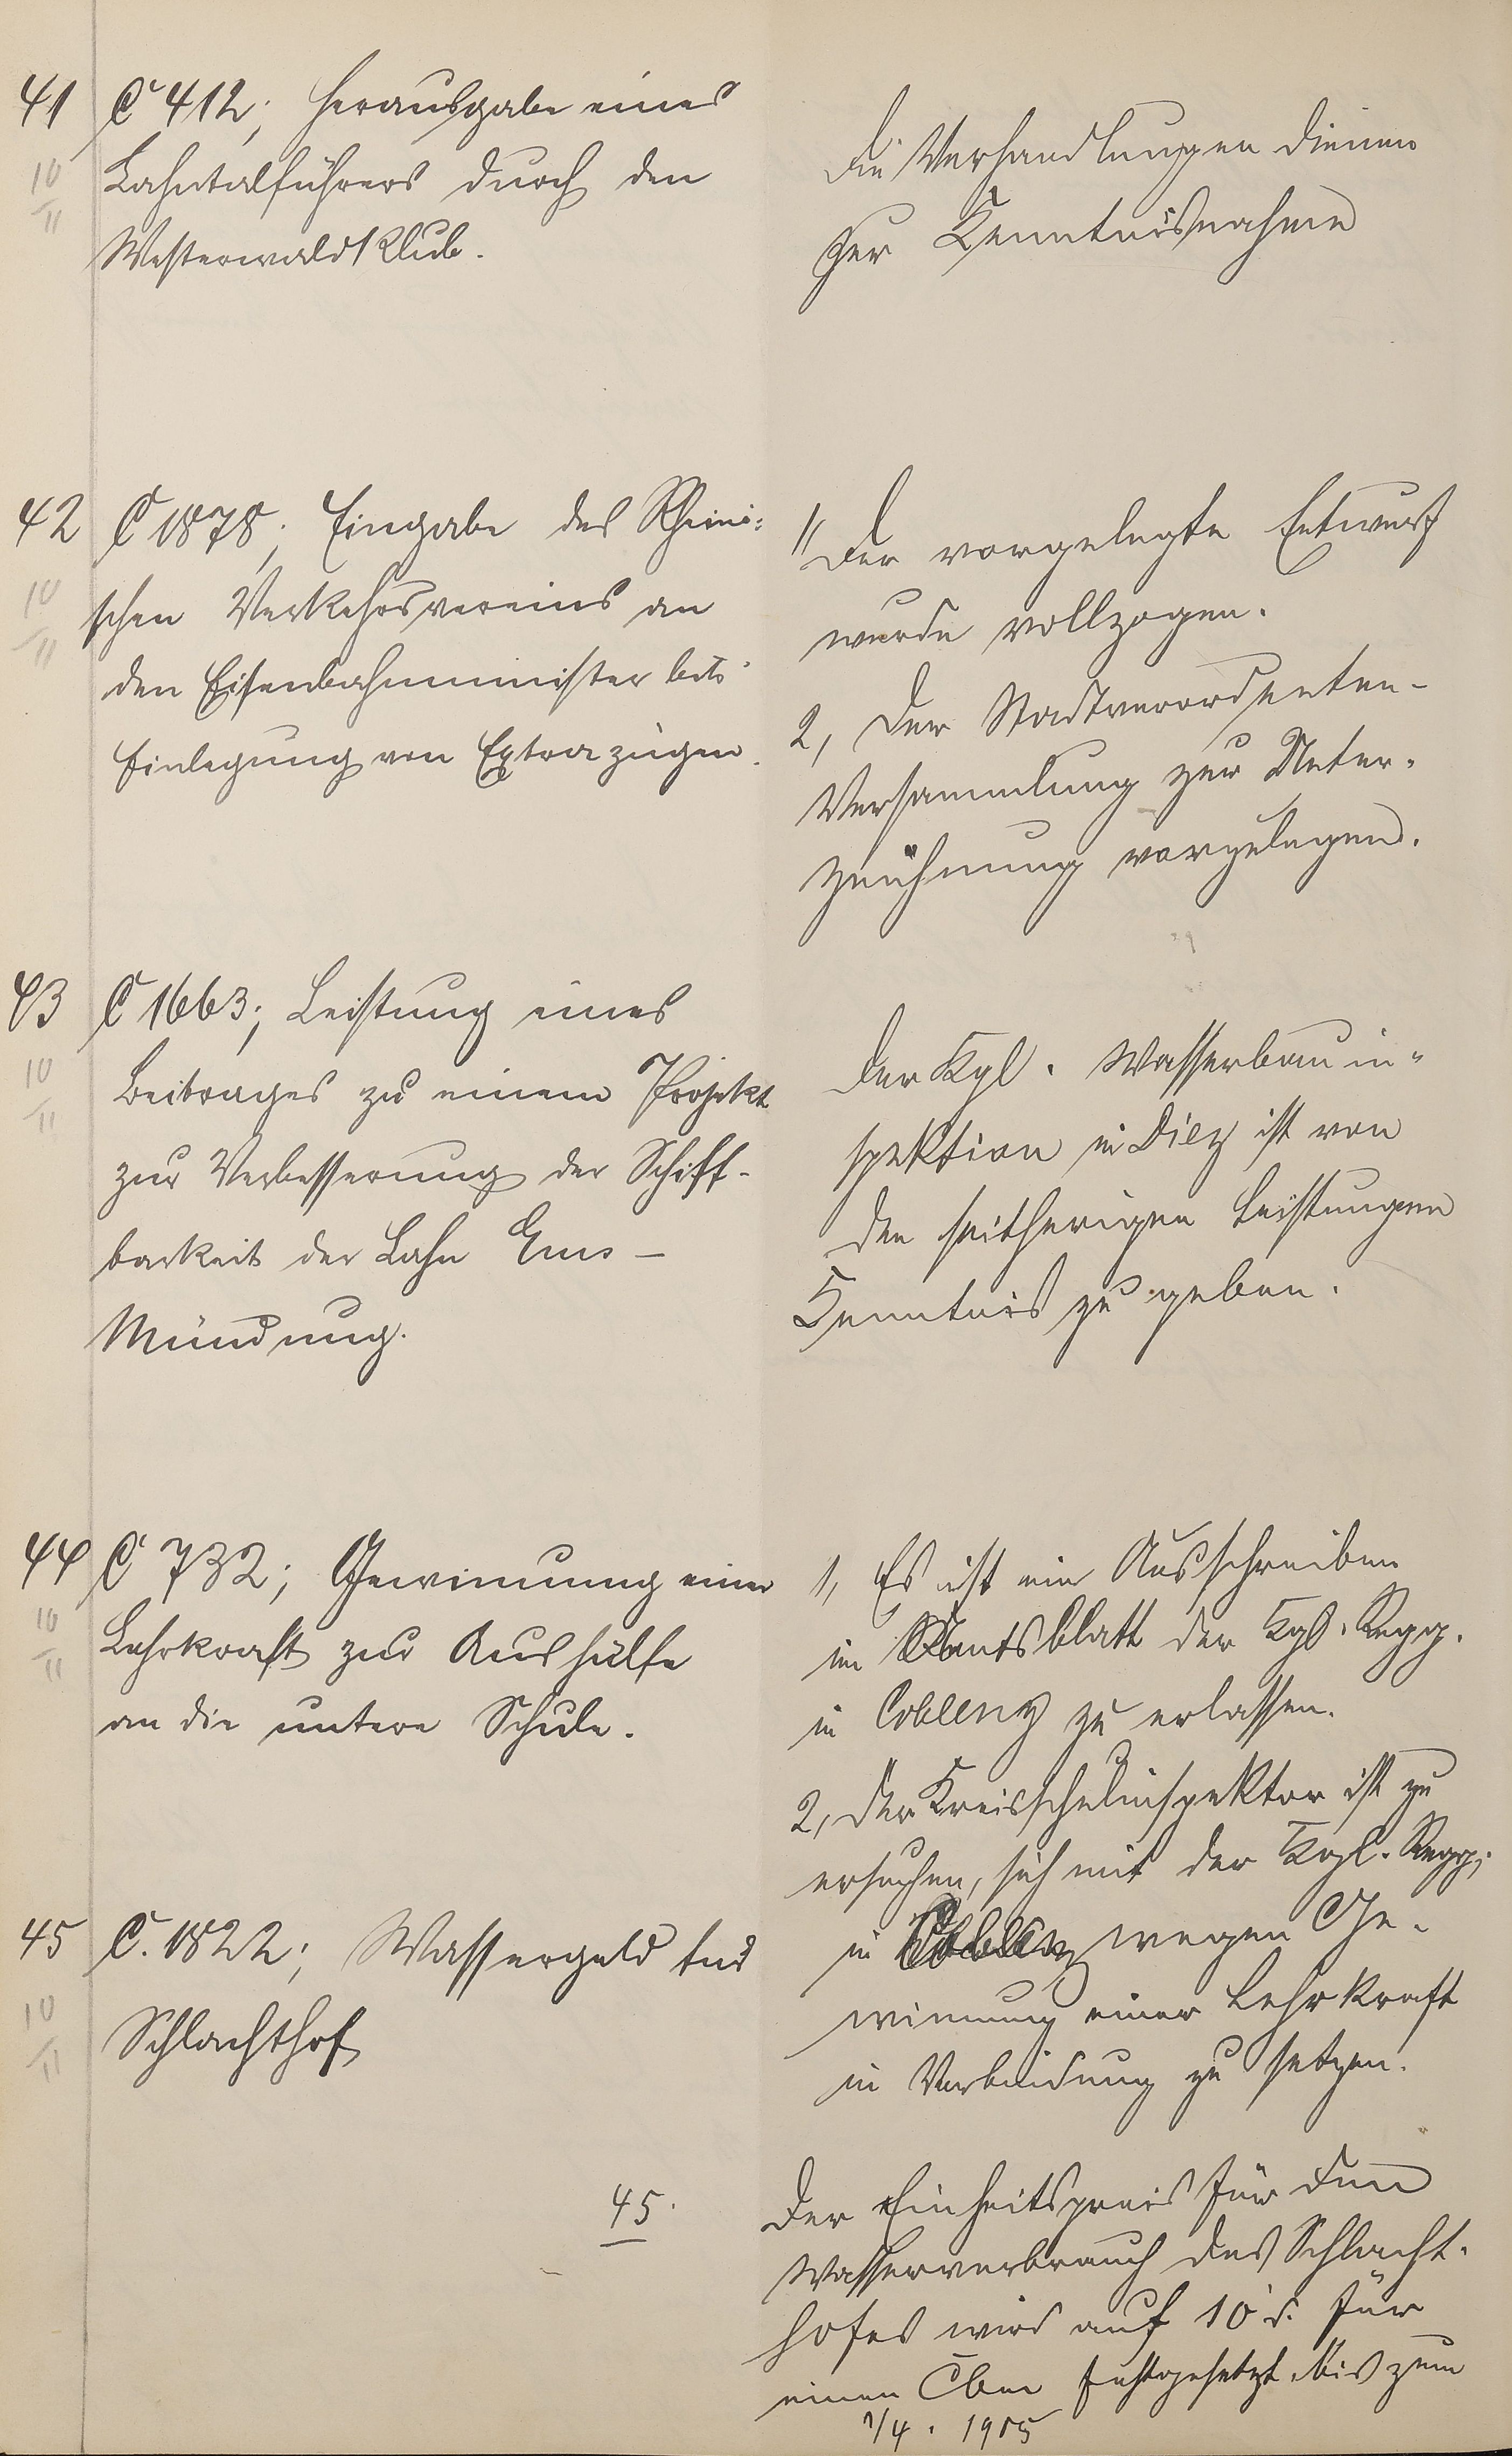 41
10
II
C 412; Herausgabe eines
Lahntalführers durch den
Westerwaldklub.
Die Verhandlungen dienen
zur Kenntnisnahme
42
10
II
C 1878; Eingabe des Rheini-
schen Verkehrsvereins an
den Eisenbahnminister betr.
Einlegung von Extrazügen.
1, Der vorgelegte Entwurf
wurde vollzogen.
2, Der Stadtverordneten-
Versammlung zur Unter-
zeichnung vorzulegen.
43
10
II
C 1663; Leistung eines
Beitrages zu einem Projekt
zur Verbesserung der Schiff-
barkeit der Lahn Ems -
Mündung.
Der Kgl. Wasserbauin-
spektion in Diez ist von
den seitherigen Leistungen
Kenntnis zu geben.
44
10
II
C 732; Gewinnung einer
Lehrkraft zur Aushülfe
an die untere Schule.
1, Es ist ein Ausschreiben
im Amtsblatt der Kgl. Regg.
in Coblenz zu erlassen.
2, Der Kreisschulinspektor ist zu
ersuchen, sich mit der Kgl. Regg.
in Coblenz wegen Ge-
winnung einer Lehrkraft
in Verbindung zu setzen.
45
10
II
C. 1822; Wassergeld für
Schlachthof
45.
Der Einheitspreis für den
Wasserverbrauch des Schlacht-
hofes wird auf 10 d. für
einen Cbm festgesetzt bis zum
1/4. 1905